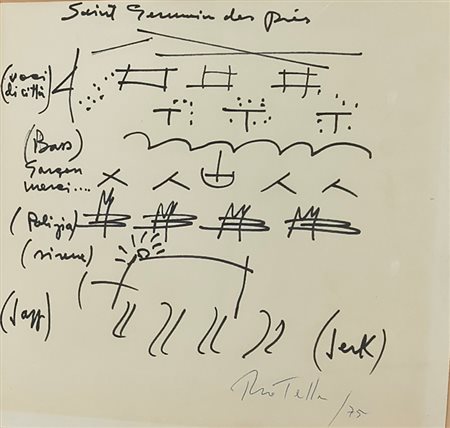 Saint Germain des Prés
(voci
di città)
(Bass)
Garçon
merci....
(Polizia)
(sirene)
(Jazz)
(Jerk)
Rotella /75